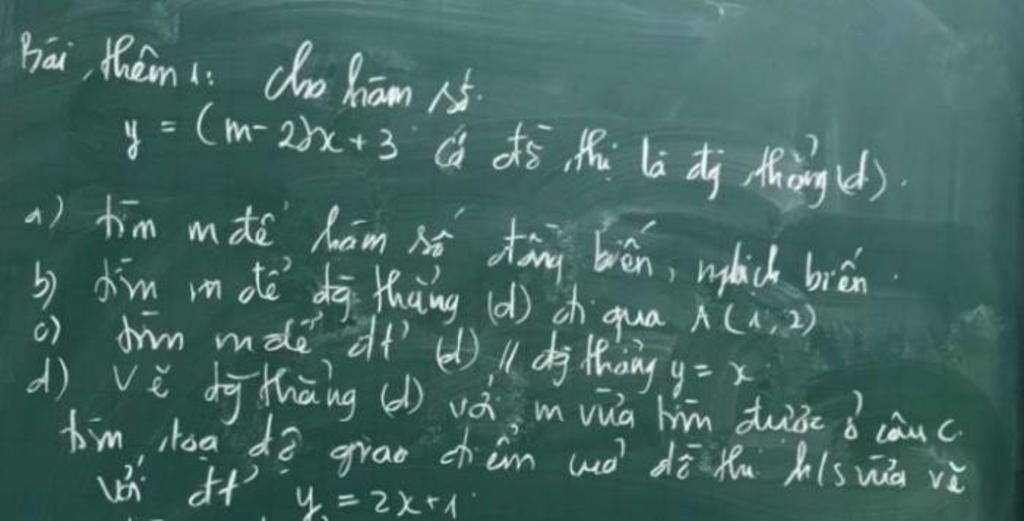 Bài thêm 1: Cho hàm số.
y = (m-2)x+3 có đồ thị là đg thẳng (d).
a) tìm m để hàm số đồng biến, nghịch biến.
b) tìm m để đg thẳng (d) đi qua A(1,2)
c) tìm m để đt' (d) // đg thẳng y = x
d) vẽ đg thẳng (d) với m vừa tìm được ở câu c.
tìm toạ độ giao điểm của đồ thị h/s vừa vẽ
với đt' y = 2x+1.